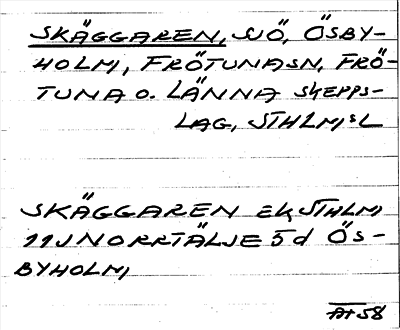 SKÄGGAREN, SJÖ, ÖSBY-
HOLM, FRÖTUNA SN, FRÖ-
TUNA O. LÄNNA SKEPPS-
LAG, STHLMS L
SKÄGGAREN EK STHLM
11J NORRTÄLJE 5d ÖS-
BYHOLM
AT 58